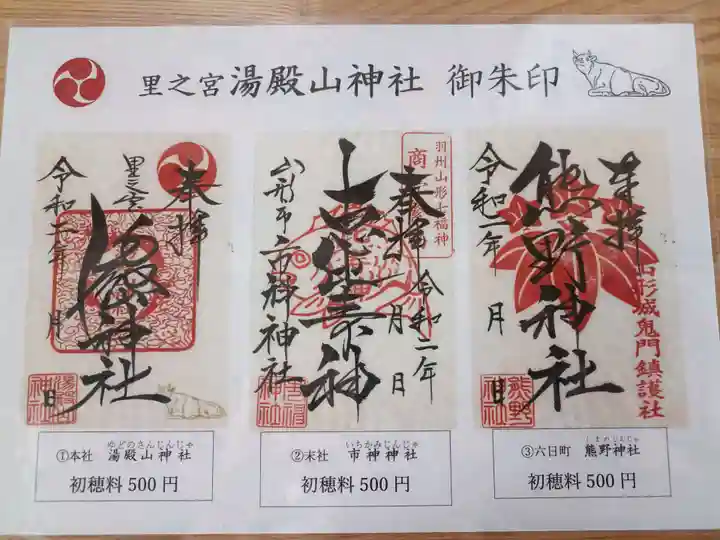 里之宮湯殿山神社 御朱印
奉拝
里之宮
湯殿山神社
令和二年
月
日
羽州山形七福神
奉拝
令和二年
月
日
山形市
市神神社
奉拝
熊野神社
令和二年
月
日
山形城鬼門鎮護社
熊野
神社
ゆどのさんじんじゃ
①本社 湯殿山神社
初穂料500円
いちかみじんじゃ
②末社 市神神社
初穂料500円
③六日町 熊野神社
初穂料500円